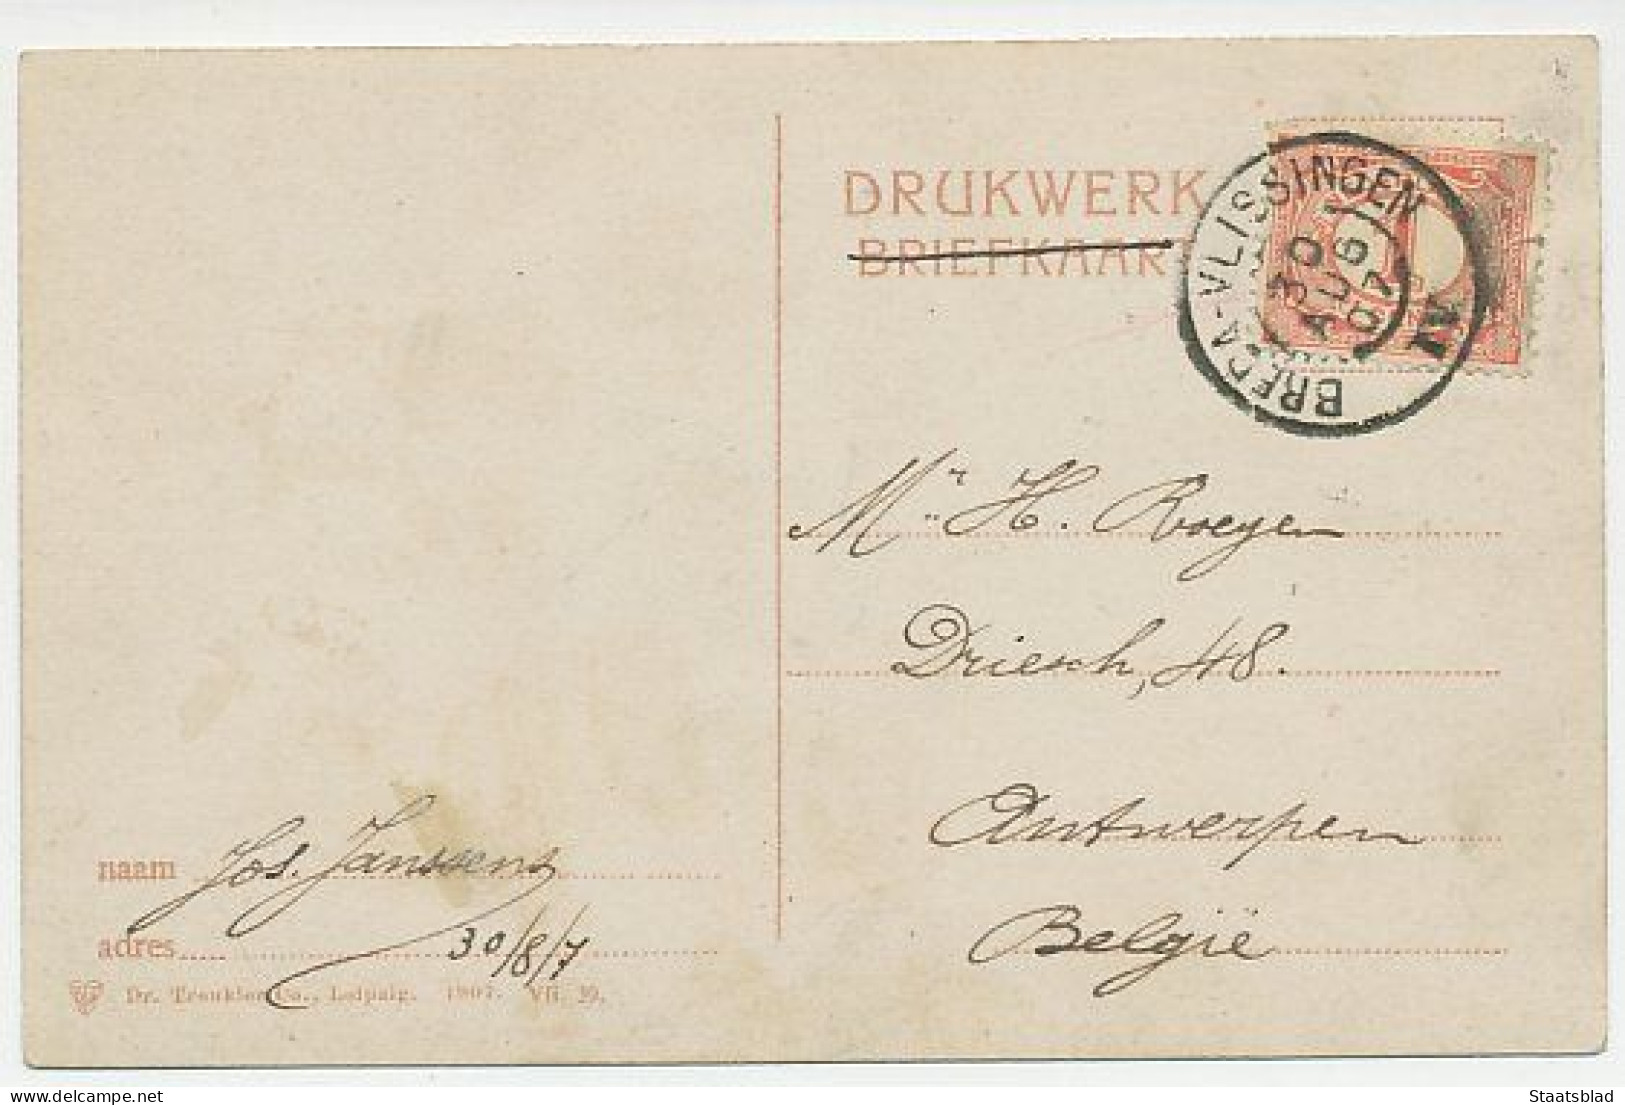 DRUKWERK
BRIEFKAART
BREDA-VLISSINGEN
30
AUG
07
IV
Mr H. Roeyen
Driesch, 48.
Antwerpen
België
naam Jos. Janssens
adres 30/8/7
Dr. Trenkler Co., Leipzig. 1907. Vli. 39.
Staatsblad